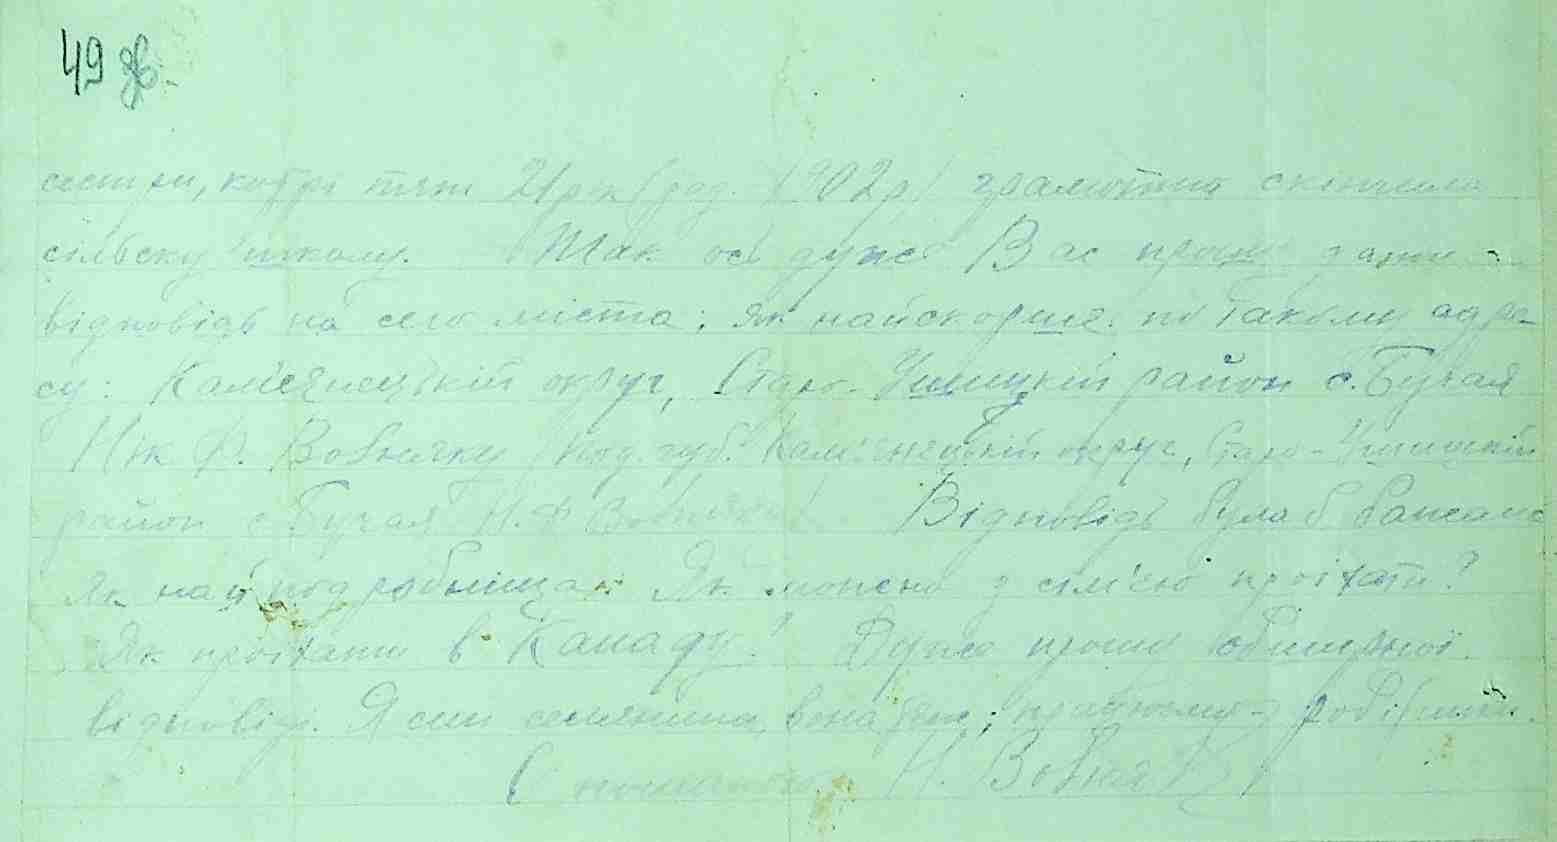 49 зв.
сестри, котрі 21 рік (род. 1902 р) грамотна скінчила
сільску школу. Так ось дуже Вас прошу дати
відповідь на сего міста; як найскорше по такому адре-
су: Кам'янецькій округ, Старо-Ушицкій район с. Бучая
Нік Ф. Вовнячку Под. губ. Кам'янецькій округ, Старо-Ушицкій
район с. Бучая Н. Ф Відповідь була б бажана
як найподробніща: Як можно з сім'єю проїхати?
Як проїхати в Канаду? Дуже прошу обширної
відповіді. Я син селянина, вона
С пошаною Н.